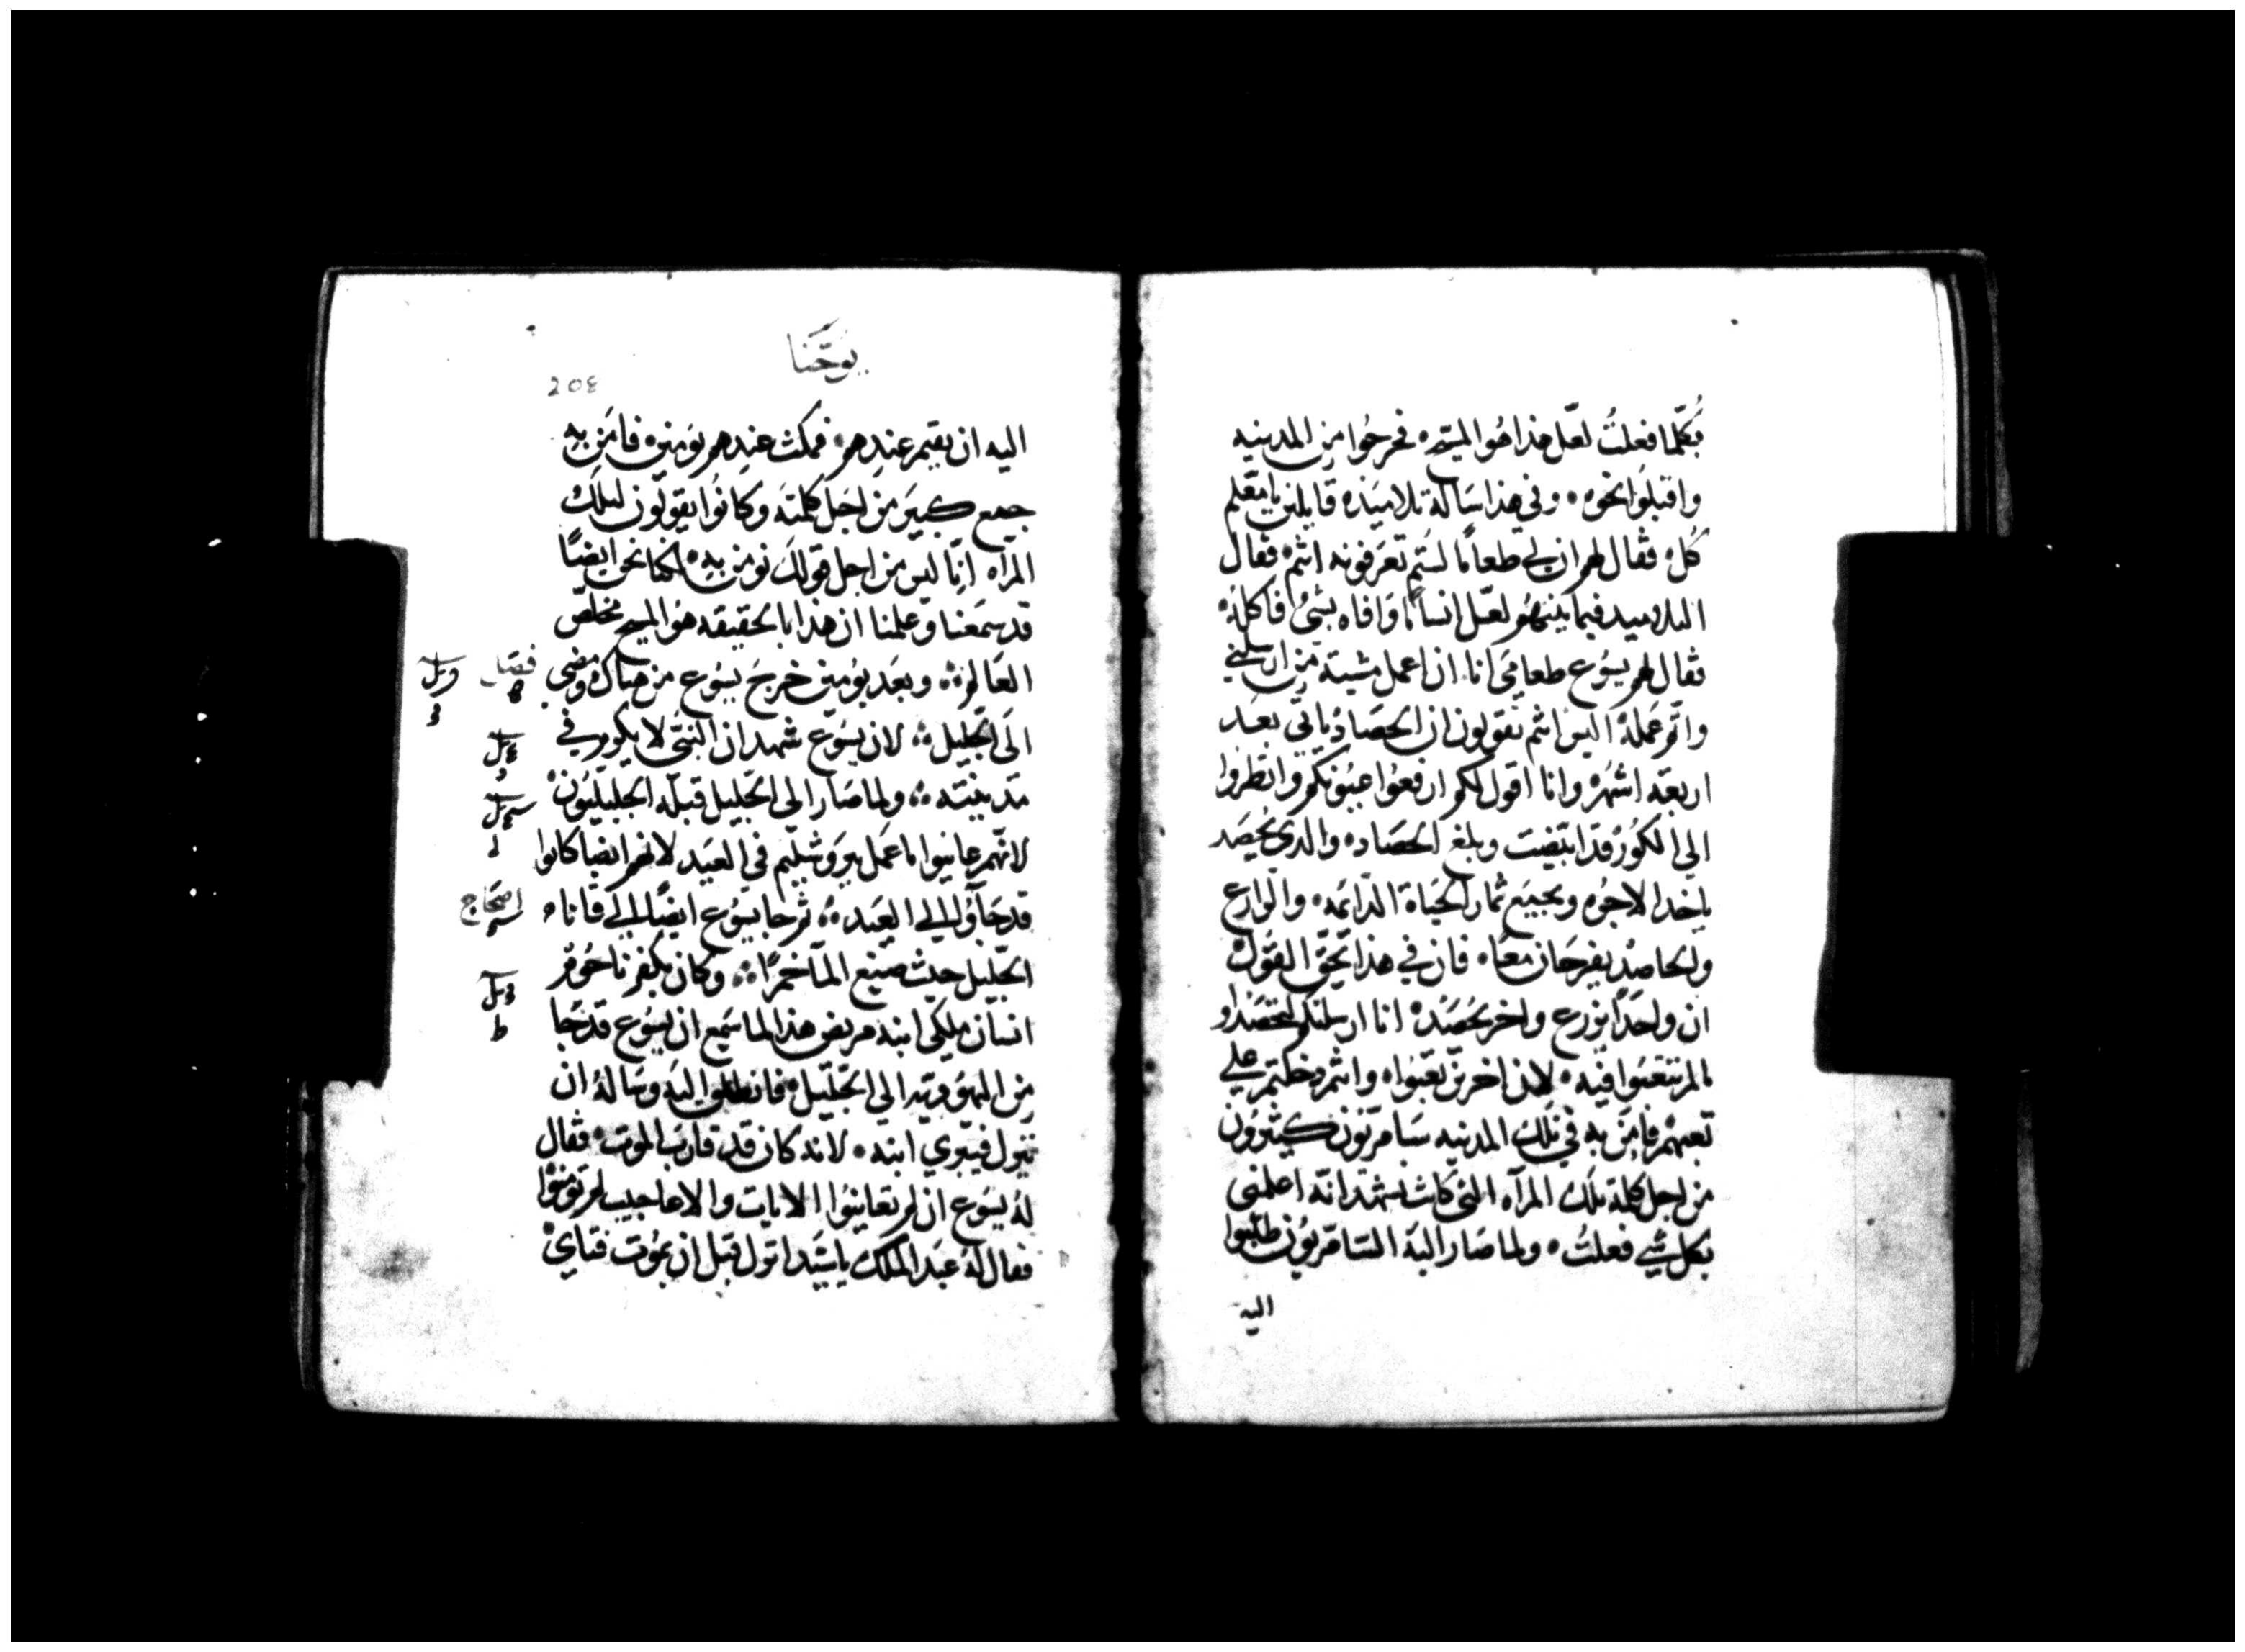 بكلما فعلت لعل هذا هو المسيح ه فخرجوا من المدينه
واقبلوا نحوه ه وفي هذا ساله تلاميذه قايلين يا معلم
كل ه فقال لهم ان لي طعاما لستم تعرفونه انتم ه فقال
التلاميد فيما بينهم لعل انسانا وافاه بشي فاكله ه
فقال لهم يسوع طعامي انا ان اعمل مشية من ارسلني
واتم عمله اليس انتم تقولون ان الحصاد ياتي بعد
اربعة اشهر ه وانا اقول لكم ارفعوا عيونكم وانظروا
الي الكور قد ابيضت وبلغ الحصاد ه والدي يحصد
ياخد الاجره ويجمع ثمار الحياة الدايمه ه والزارع
والحاصد يفرحان معا ه فان في هذا يحق القول
ان واحدا يزرع واخر يحصد ه انا ارسلتكم لتحصدوا
مالم تتعبوا فيه ه لان اخرين تعبوا ه وانتم دخلتم علي
تعبهم فامن به في تلك المدينه سامريون كثيرون
من اجل كلمة تلك المرآه التي كانت تشهد انه اعلمني
بكل شي فعلت ه ولما صار اليه السامريون طلبوا
اليه
يوحنا
208
اليه ان يقيم عندهم ه فمكث عندهم يومين ه فامن به
جمع كبير من اجل كلمته وكانوا يقولون لتلك
المراه اننا ليس من اجل قولك نومن به ه لكننا نحن ايضا
قد سمعنا وعلمنا ان هذا بالحقيقه هو المسيح مخلص
العالم ه وبعد يومين خرج يسوع من هناك ومضي
فصل
الى الجليل ه لان يسوع شهد ان النبي لا يكرم في
مدينته ه ولما صار الى الجليل قبله الجليليون ه
لانهم عاينوا ما عمل بيروشليم في العيد لانهم ايضا كانوا
قد جاوا الي العيد ه ثم جا يسوع ايضا الي قانا ه
اصحاح
الجليل حيث صنع الما خمرا ه وكان بكفرناحوم
انسان ملكي ابنه مريض هذا لما سمع ان يسوع قد جا
من اليهوديه الي الجليل ه فانطلق اليه وساله ان
ينزل فيبري ابنه ه لانه كان قد قارب الموت ه فقال
له يسوع ان لم تعاينوا الايات والاعاجيب لم تومنوا
فقال له عبد الملك يا سيد انزل قبل ان يموت فتاي ه